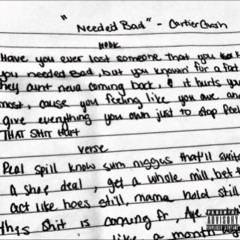 "Needed Bad" - Cartier Cash
HOOK
Have you ever lost someone that you
you needed Bad, but you knowin' for a fact
they aunt neva coming back, & it hurts you
most, cause you feeling like you owe an
give everything you own just to stop feel
THAT SHIT HURT
verse
Real spill know sum niggus that'll switch
a shoe deal, get a whole mill, bet
act like hoes still, mama hold still
this shit is coming fr, Aye
like a month